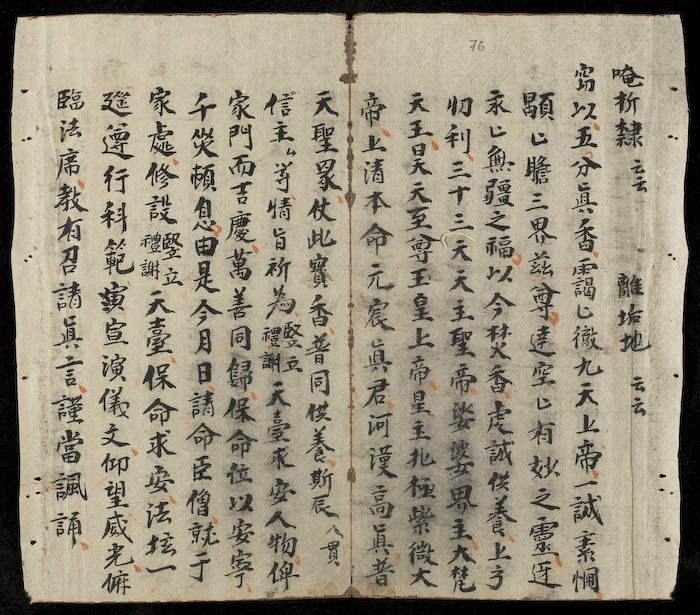 76
唵析隸 云云 離垢地 云云
竊以五分真香靄上徹九天上帝一誠素悃
顒上瞻三界茲尊達空上有妙之靈迓
永上無疆之福以今焚香虔誠供養上亨
忉利三十三天天主聖帝娑婆界主大梵
天王昊天至尊玉皇上帝星主北極紫微大
帝上清本命元宸真君河漢高真普
天聖眾仗此寶香普同供養斯辰 八貫
信主厶等情旨祈為 竪立 禮謝 天臺求安人物俾
家門而吉慶萬善同歸保命位以安寧
千災頓息由是今月日請命臣僧就于
家處修設 竪立 禮謝 天臺保命求安法坛一
筵遵行科範演宣演儀文仰望威光俯
臨法席教有召請真言謹當諷誦